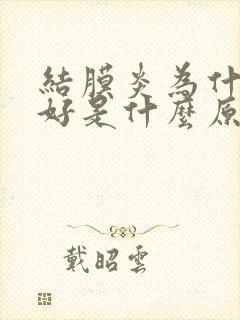 結膜炎為什
好是什麼原
戴昭雲